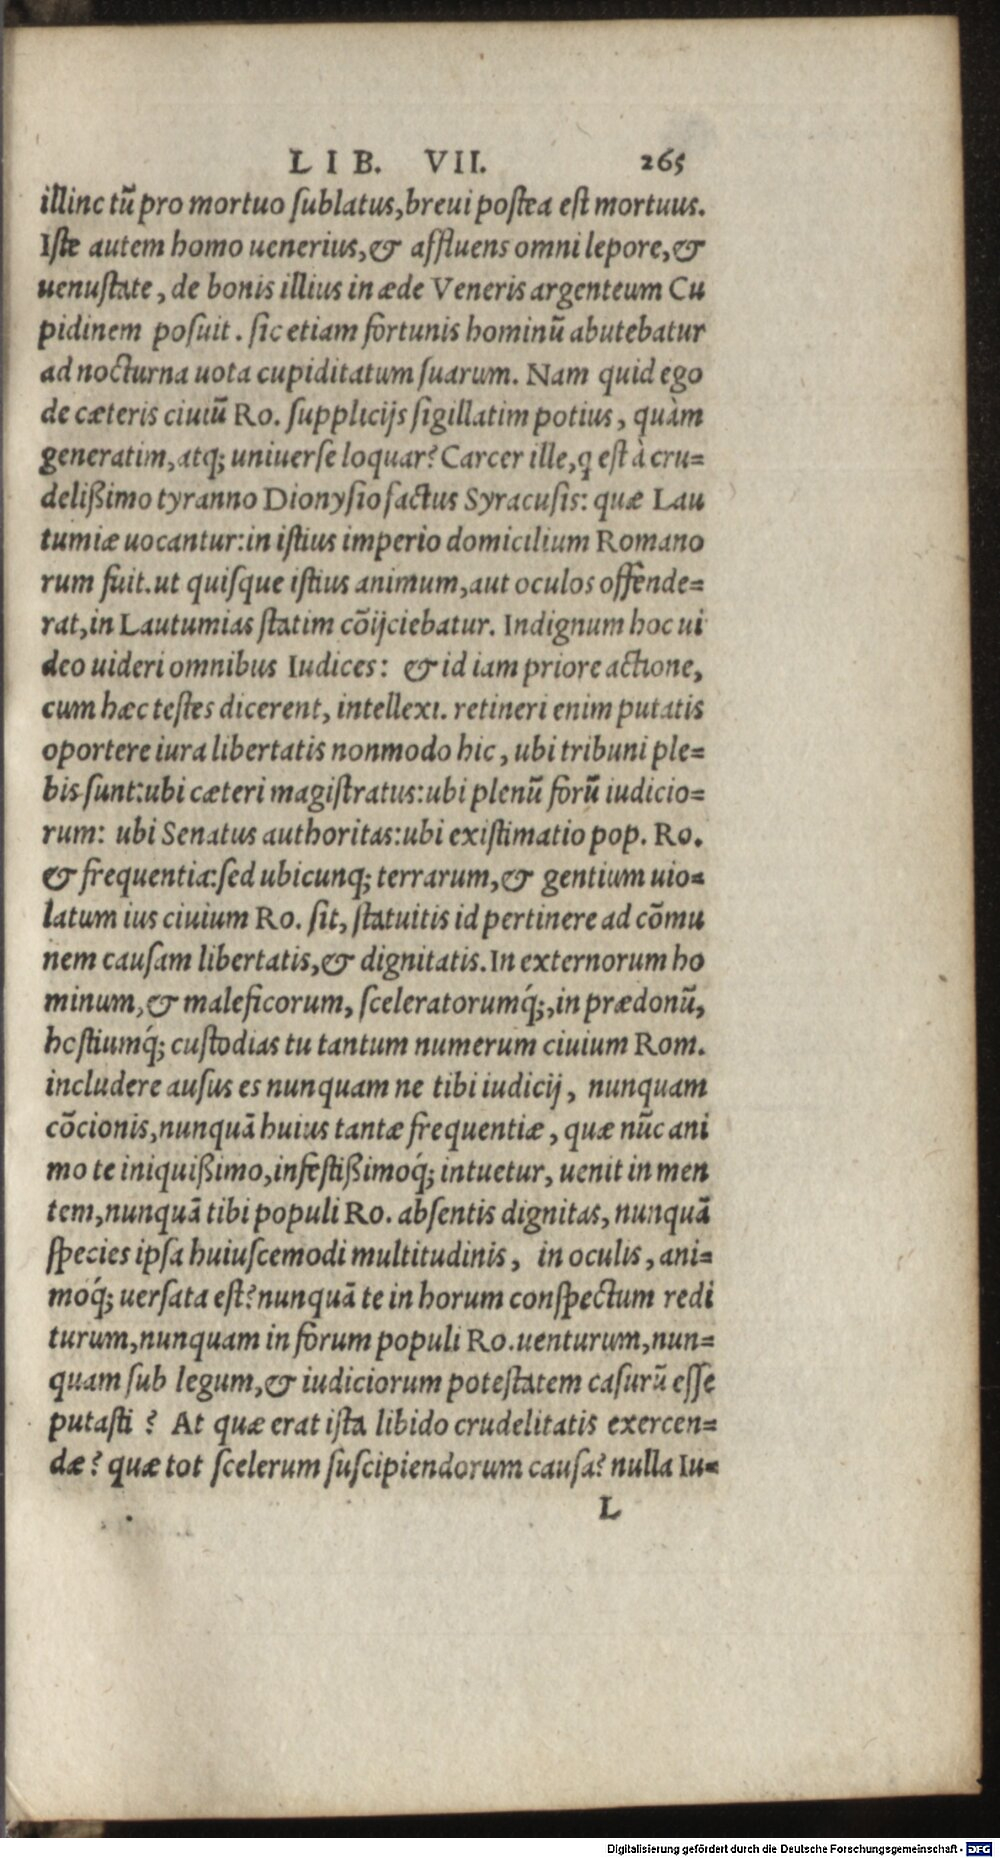 LIB. VII. 265
illinc tũ pro mortuo ſublatus, breui poſtea eſt mortuus.
Iſte autem homo uenerius, & affluens omni lepore, &
uenuſtate, de bonis illius in æde Veneris argenteum Cu
pidinem poſuit. ſic etiam fortunis hominũ abutebatur
ad nocturna uota cupiditatum ſuarum. Nam quid ego
de cæteris ciuiũ Ro. ſupplicijs ſigillatim potius, quàm
generatim, atq; uniuerſe loquar? Carcer ille, q eſt à cru=
delißimo tyranno Dionyſio factus Syracuſis: quæ Lau
tumiæ uocantur: in iſtius imperio domicilium Romano
rum fuit. ut quiſque iſtius animum, aut oculos offende=
rat, in Lautumias ſtatim cõijciebatur. Indignum hoc ui
deo uideri omnibus Iudices: & id iam priore actione,
cum hæc teſtes dicerent, intellexi. retineri enim putatis
oportere iura libertatis nonmodo hic, ubi tribuni ple=
bis ſunt: ubi cæteri magiſtratus: ubi plenũ forũ iudicio=
rum: ubi Senatus authoritas: ubi exiſtimatio pop. Ro.
& frequentia: ſed ubicunq; terrarum, & gentium uio=
latum ius ciuium Ro. ſit, ſtatuitis id pertinere ad cõmu
nem cauſam libertatis, & dignitatis. In externorum ho
minum, & maleficorum, ſceleratorumq́;, in prædonũ,
hoſtiumq́; cuſtodias tu tantum numerum ciuium Rom.
includere auſus es nunquam ne tibi iudicij, nunquam
cõcionis, nunquã huius tantæ frequentiæ, quæ nũc ani
mo te iniquißimo, infeſtißimoq́; intuetur, uenit in men
tem, nunquã tibi populi Ro. abſentis dignitas, nunquã
ſpecies ipſa huiuſcemodi multitudinis, in oculis, ani=
moq́; uerſata eſt? nunquã te in horum conſpectum redi
turum, nunquam in forum populi Ro. uenturum, nun=
quam ſub legum, & iudiciorum poteſtatem caſurũ eſſe
putaſti? At quæ erat iſta libido crudelitatis exercen=
dæ? quæ tot ſcelerum ſuſcipiendorum cauſa? nulla Iu=
L
Digitalisierung gefördert durch die Deutsche Forschungsgemeinschaft - DFG